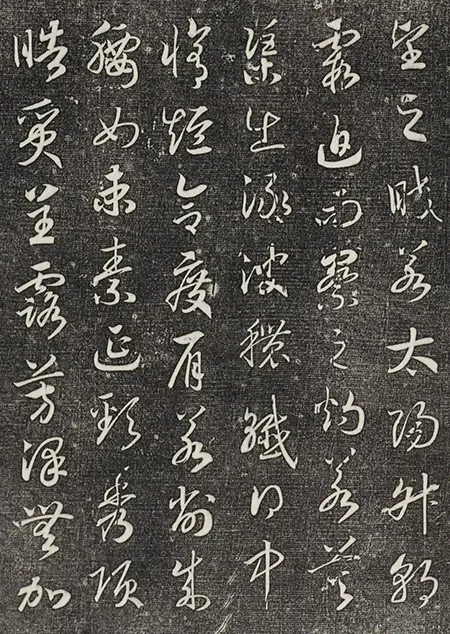 望之皎若太陽升朝
霞迫而察之灼若芙
渠出淥波穠纖得中
脩短合度肩若削成
腰如束素延頸秀項
晧質呈露芳澤無加